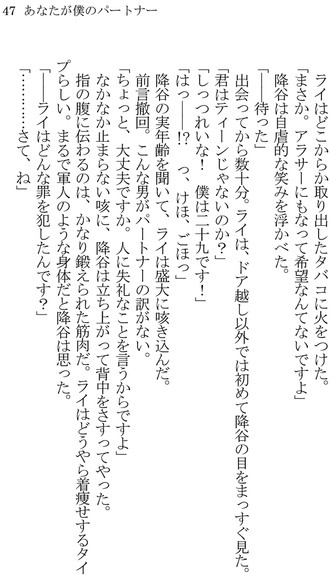 47 あなたが僕のパートナー
ライはどこからか取り出したタバコに火をつけた。
「まさか。アラサーにもなって希望なんてないですよ」
降谷は自虐的な笑みを浮かべた。
「――待った」
出会ってから数十分。ライは、ドア越し以外では初めて降谷の目をまっすぐ見た。
「君はティーンじゃないのか?」
「しっつれいな! 僕は二十九です!」
「はっ――!? っ、けほ、ごほっ」
降谷の実年齢を聞いて、ライは盛大に咳き込んだ。
前言撤回。こんな男がパートナーの訳がない。
「ちょっと、大丈夫ですか。人に失礼なことを言うからですよ」
なかなか止まらない咳に、降谷は立ち上がって背中をさすってやった。
指の腹に伝わるのは、かなり鍛えられた筋肉だ。ライはどうやら着痩せするタイ
プらしい。まるで軍人のような身体だと降谷は思った。
「――ライはどんな罪を犯したんです?」
「…………さて、ね」